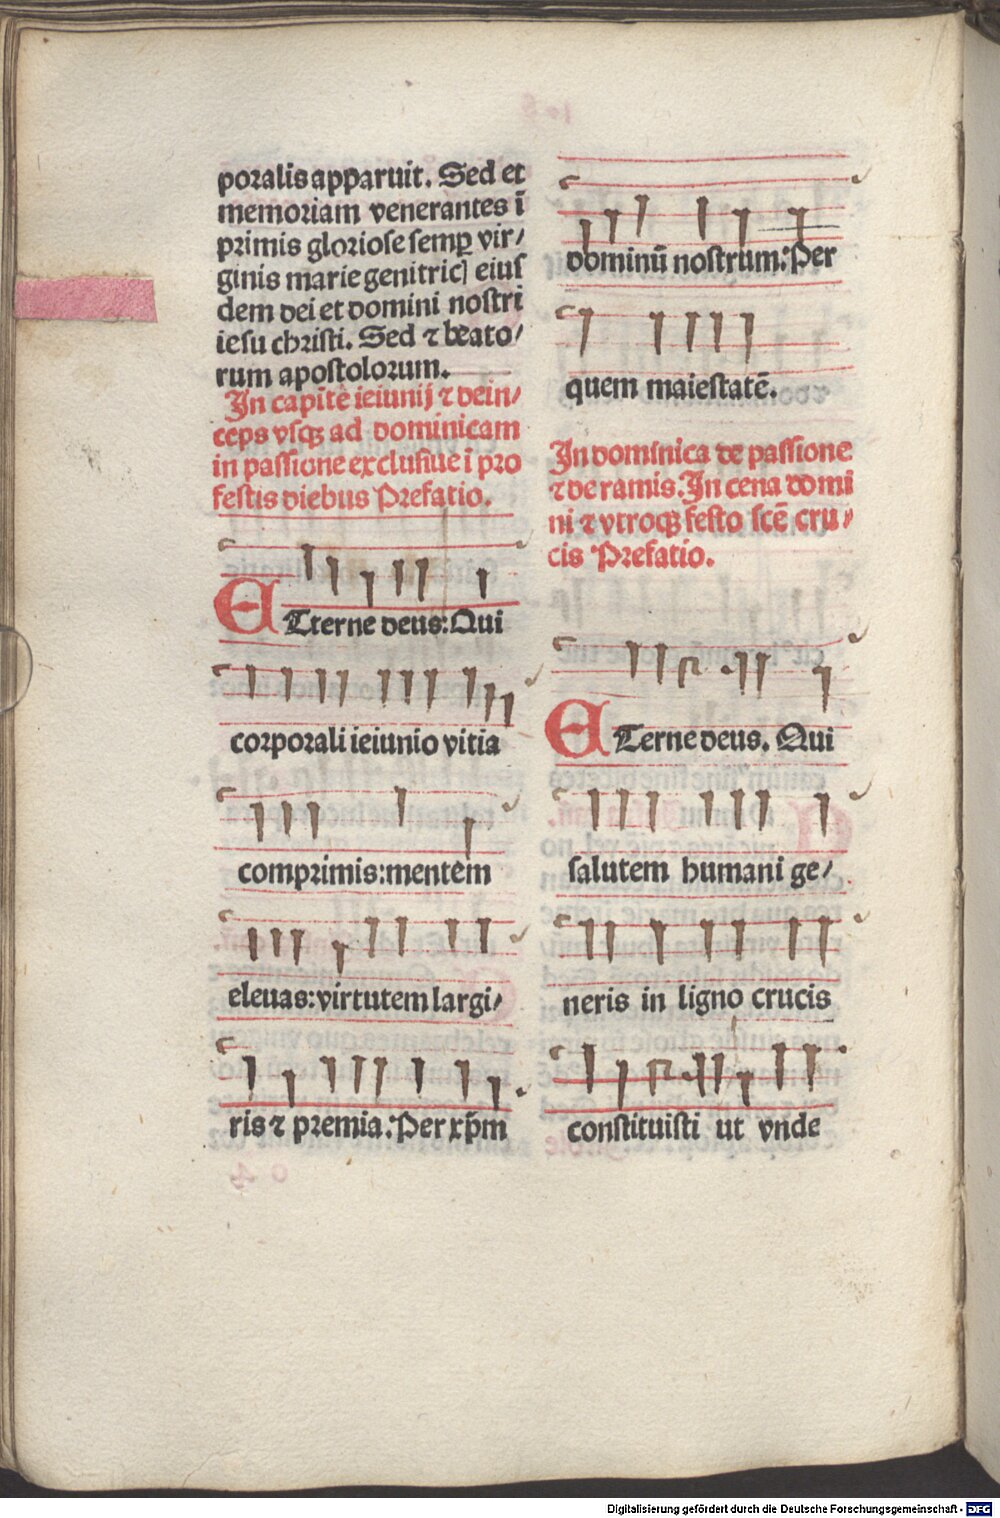 poralis apparuit. Sed et
memoriam venerantes ī
primis gloriose semꝑ vir/
ginis marie genitricꝭ eius
dem dei et domini nostri
iesu christi. Sed ⁊ beato/
rum apostolorum.
In capite ieiunij ⁊ dein/
ceps vsqꝫ ad dominicam
in passione exclusiue ī pro
festis diebus Prefatio.
ETterne deus: Qui
corporali ieiunio vitia
comprimis: mentem
eleuas: virtutem largi/
ris ⁊ premia. Per xp̄m
dominū nostrum: Per
quem maiestatē.
In dominica de passione
⁊ de ramis. In cena domi
ni ⁊ vtroqꝫ festo scē cru/
cis Prefatio.
ETerne deus. Qui
salutem humani ge/
neris in ligno crucis
constituisti ut vnde
Digitalisierung gefördert durch die Deutsche Forschungsgemeinschaft - DFG